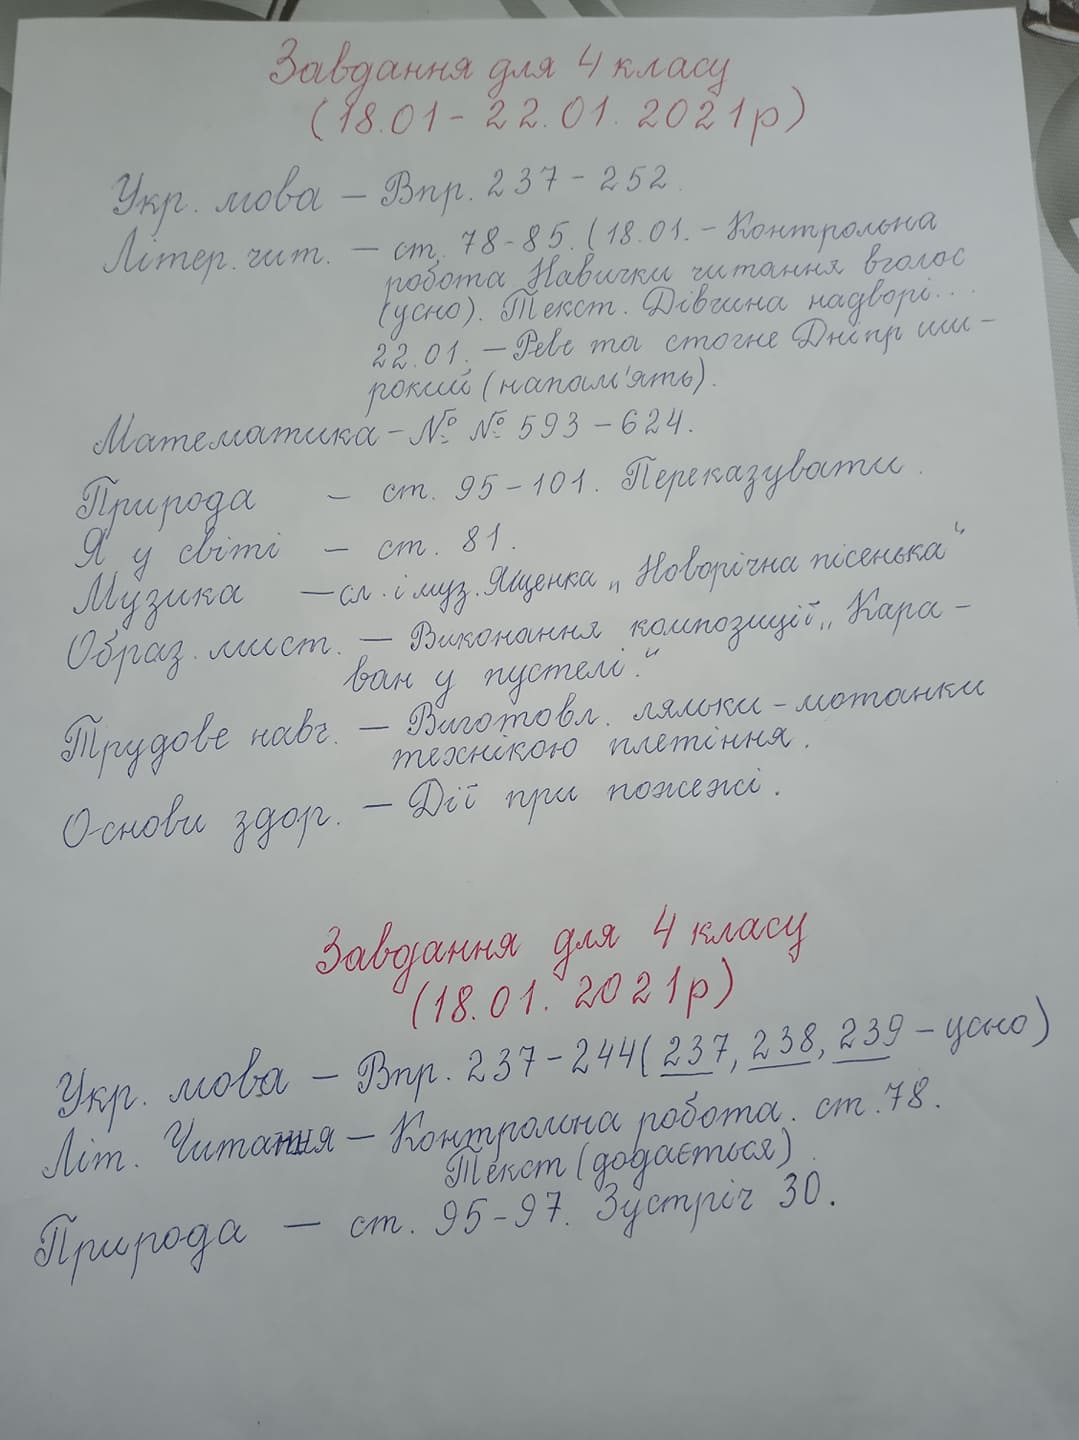 Завдання для 4 класу
(18.01 - 22.01. 2021р)
Укр. мова — Впр. 237 - 252.
Літер. чит. — ст. 78-85. (18.01. - Контрольна
робота Навички читання вголос
(усно). Текст. Дівчина надворі...
22.01. — Реве та стогне Дніпр ши-
рокий (напам'ять).
Математика - № № 593 - 624.
Природа — ст. 95 - 101. Переказувати.
Я у світі — ст. 81.
Музика — сл. і муз. Ященка „Новорічна пісенька“
Образ. мист. — Виконання композиції „Кара-
ван у пустелі“.
Трудове навч. — Виготовл. ляльки - мотанки
технікою плетіння.
Основи здор. — Дії при пожежі.
Завдання для 4 класу
(18.01. 2021р)
Укр. мова — Впр. 237 - 244 (237, 238, 239 - усно)
Літ. Читання — Контрольна робота. ст. 78.
Текст (додається).
Природа — ст. 95 - 97. Зустріч 30.